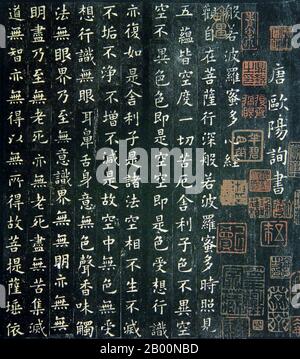 唐歐陽詢書
般若波羅蜜多心經
觀自在菩薩行深般若波羅蜜多時照見
五蘊皆空度一切苦厄舍利子色不異空
空不異色色即是空空即是色受想行識
亦復如是舍利子是諸法空相不生不滅
不垢不淨不增不減是故空中無色無受
想行識無眼耳鼻舌身意無色聲香味觸
法無眼界乃至無意識界無無明亦無無
明盡乃至無老死亦無老死盡無苦集滅
道無智亦無得以無所得故菩提薩埵依
alamy
Image ID: 2B00NBD
www.alamy.com